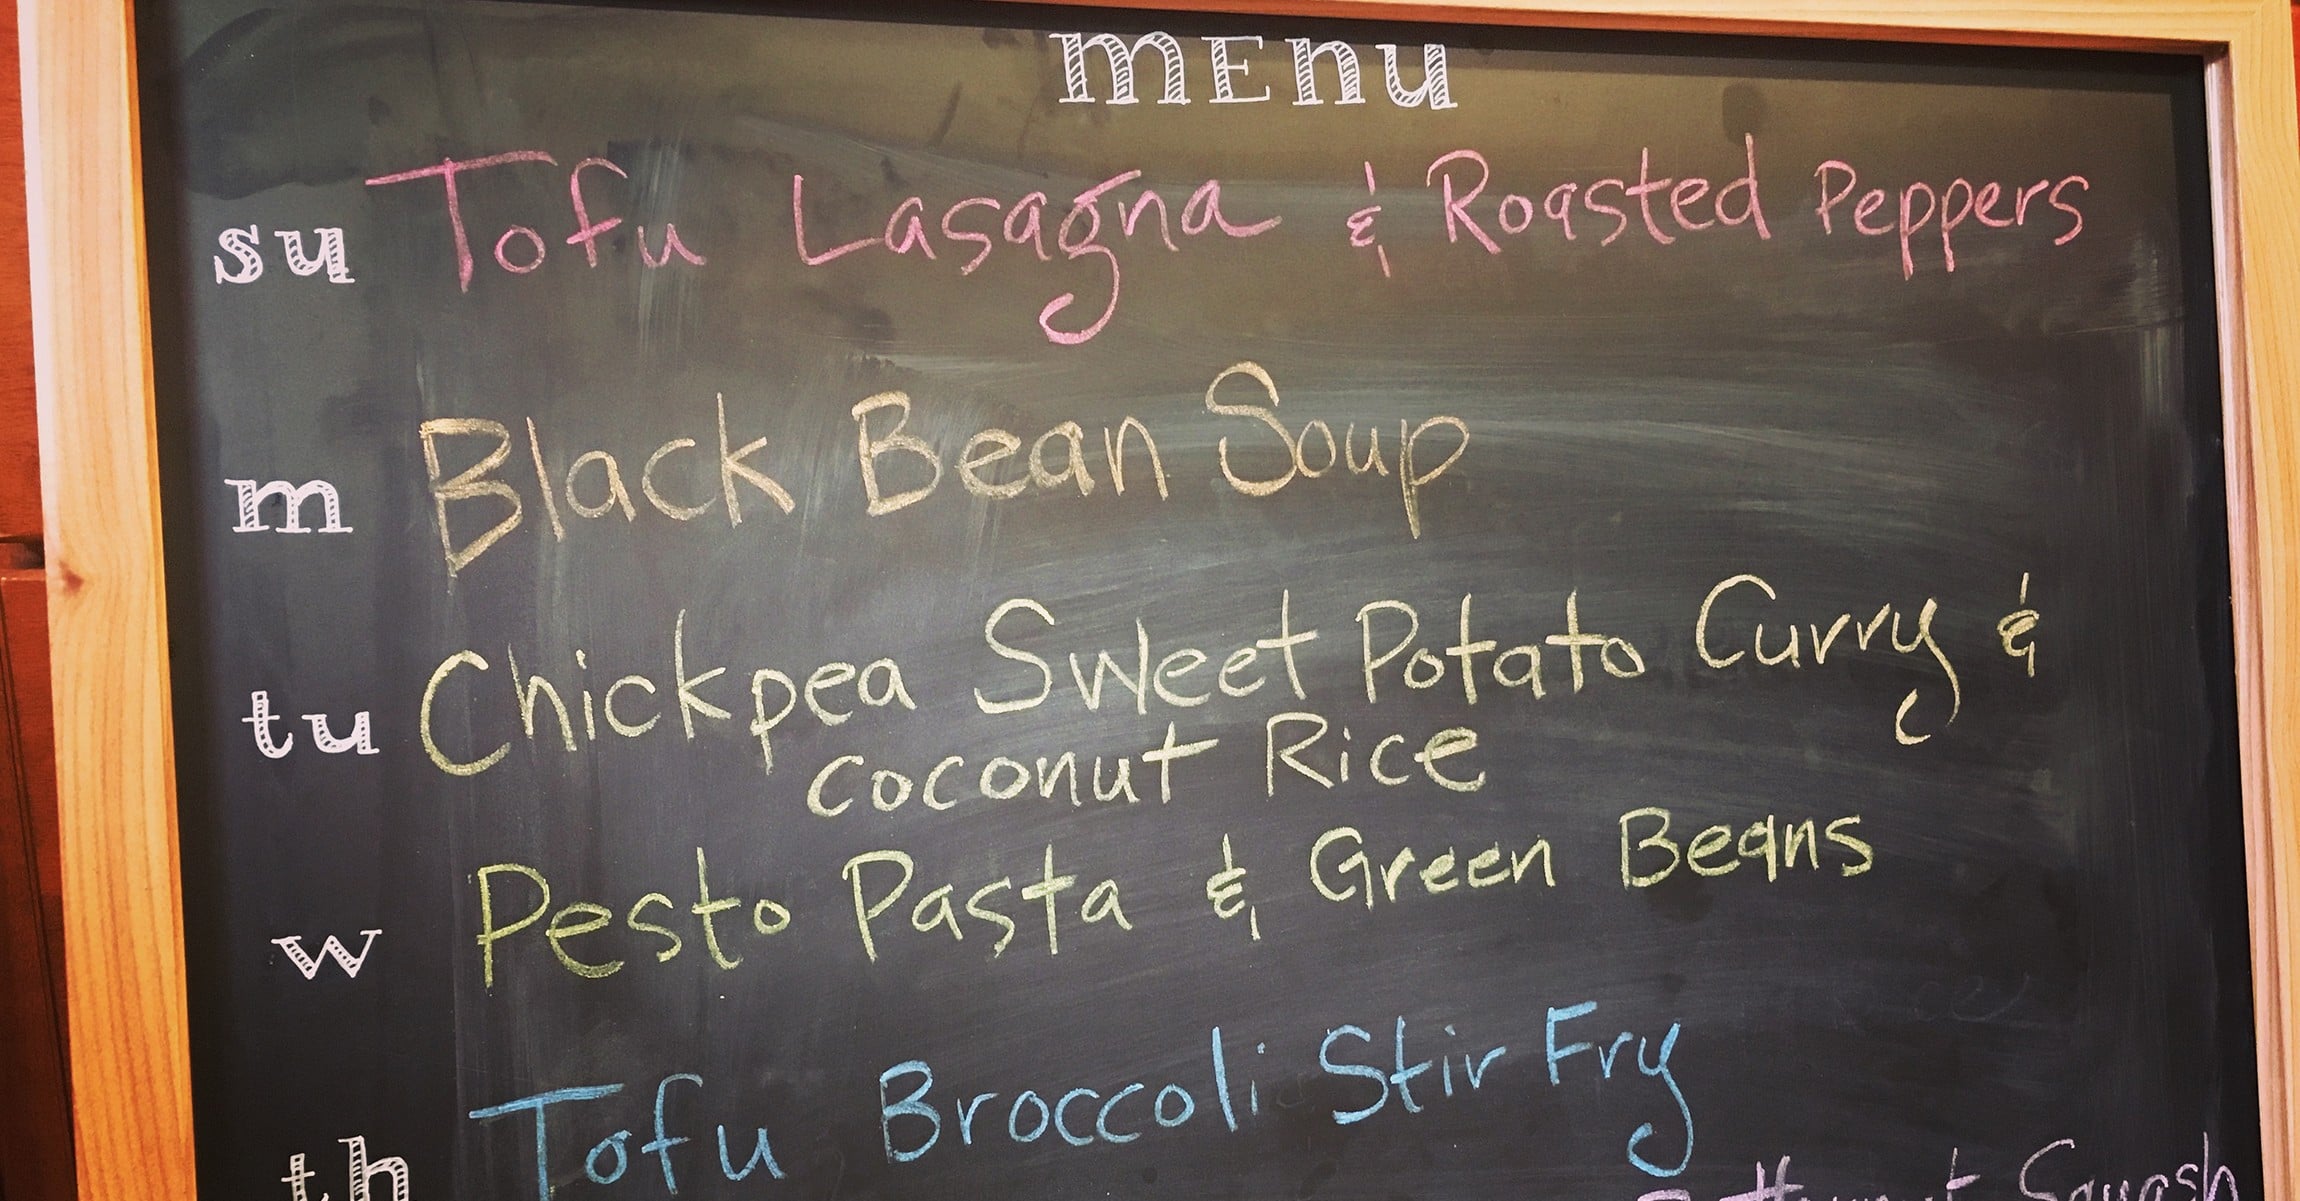 mEnu
su Tofu Lasagna & Roasted Peppers
m Black Bean Soup
tu Chickpea Sweet Potato Curry &
coconut Rice
w Pesto Pasta & Green Beans
th Tofu Broccoli Stir Fry
Squash